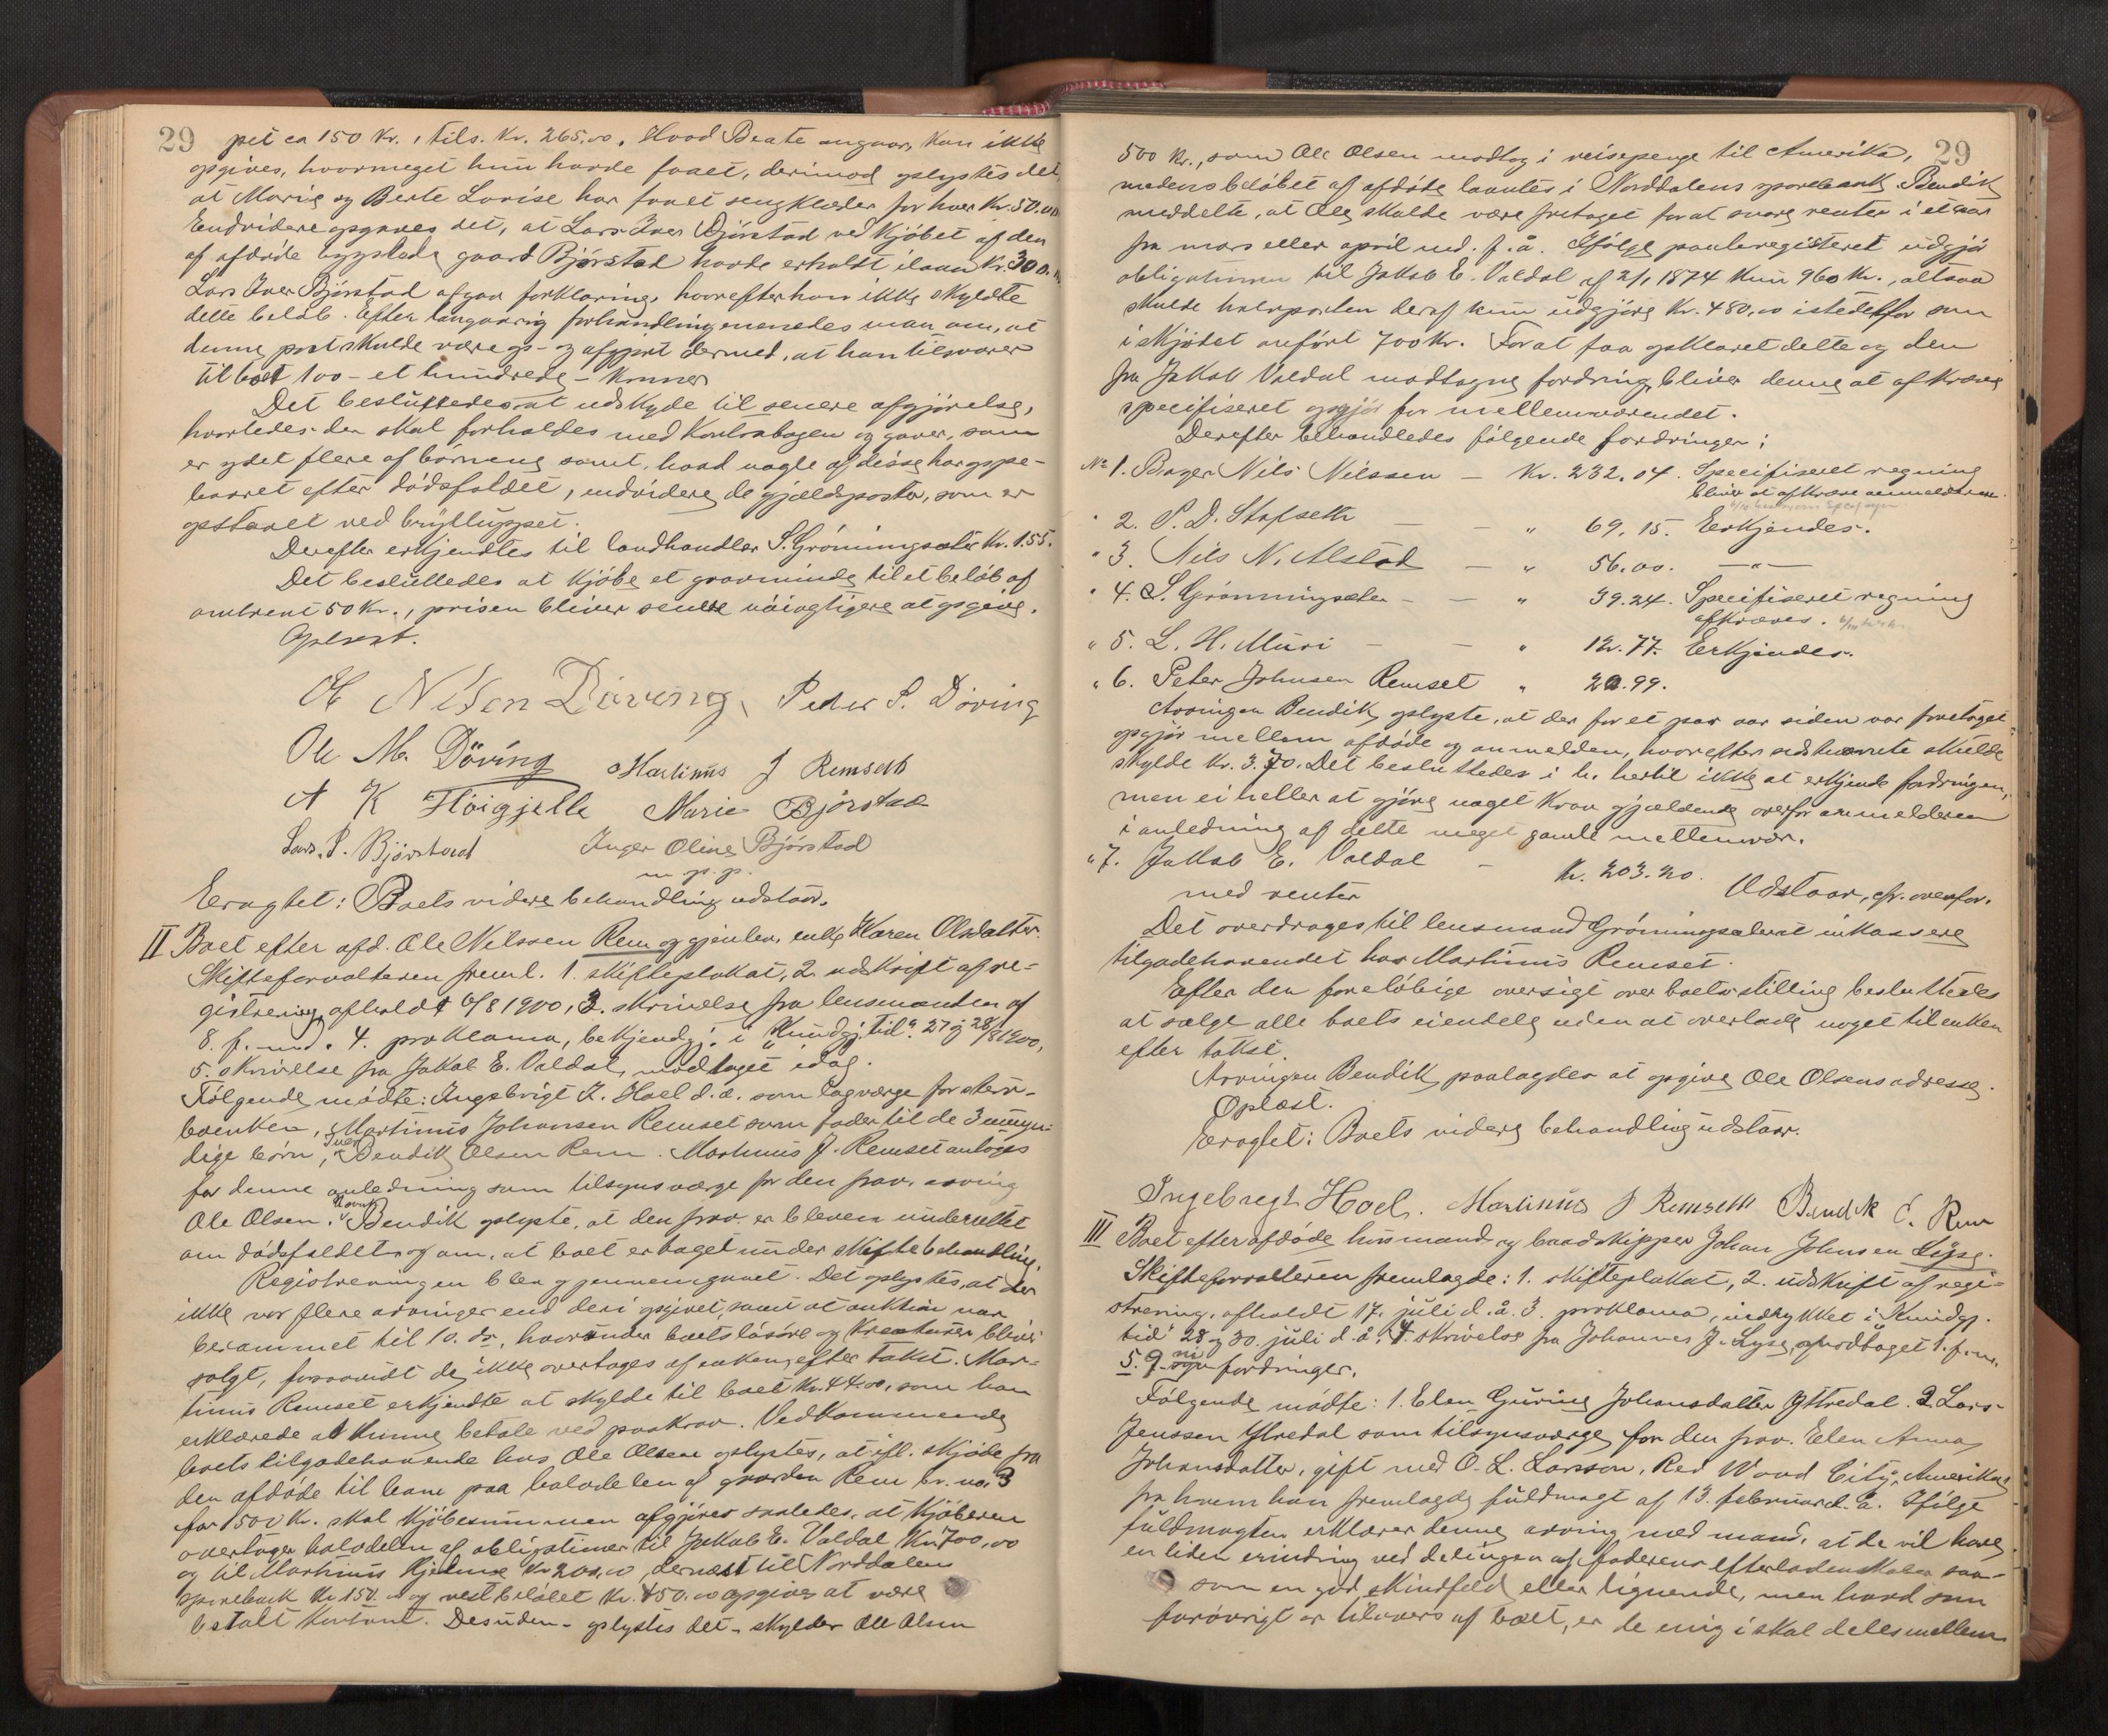 29 pet ca 150 Kr., tils. Kr. 265,00. Hvad Beate angaar, kan ikke
opgives, hvormeget hun havde faaet, derimod oplystes det,
at Marie og Berte Lovise har faaet sengklæder for hver Kr. 50.00
Endvidere opgaves det, at Lars Iver Bjørstad ved kjøbet af den
af afdøde byxlede gaard Bjørstad havde erholdt ilaan Kr. 300.
Lars Iver Bjørstad afgav forklaring, hvorefter han ikke skyldte
dette beløb. Efter langvarig forhandling enedes man om, at
denne post skulde være op- og afgjort dermed, at han tilsvarer
til boet 100 - et hundrede - kroner
Det besluttedes at udskyde til senere afgjørelse,
hvorledes der skal forholdes med Kontrabøgen og gaver, som
er ydet flere af børnene samt, hvad nogle af disse har oppe-
baaret efter dødsfaldet, endvidere de gjældsposter, som er
opstaaet ved brylluppet.
Derefter erkjendtes til landhandler S. Grønningsæter Kr. 1.55.
Det besluttedes at kjøbe et gravminde til et beløb af
omtrent 50 Kr., prisen bliver senere nøiagtigere at opgive.
Oplæst.
Ole Nilsen Døving, Peder P. Döving
Ole M. Döving Martinus J Remseth
A K Høigjelle Marie Bjørstad
Lars. P. Bjørstad Inger Oline Bjørstad
m. p. p.
Eragtet: Boets videre behandling udstaar.
II Boet efter afd. Ole Nilssen Rem og gjenlev. enke Karen Olsdatter.
Skifteforvalteren freml. 1. skifteplakat, 2. udskrift af re-
gistrering afholdt 6/8 1900, 3. skrivelse fra lensmanden af
8. f. md. 4. proklama, bekjendgj. i "Kundgj. tid". 27 og 28/8 1900,
5. skrivelse fra Jakob E. Valdal, modtaget idag.
Følgende mødte: Ingebrigt I. Hoel d.æ. som lagværge for sterv-
boenken, Martinus Johansen Remset som fader til de 3 umyn-
dige børn, Iver Bendik Olsen Rem. Martinus J. Remset antoges
for denne anledning som tilsynsværge for den frav. arving
Ole Olsen. Bendik oplyste, at den frav. er bleven underrettet
om dødsfaldet og om, at boet er taget under skiftebehandling.
Registreringen blev gjennemgaaet. Det oplystes, at der
ikke var flere arvinger end deri opgivet, samt at auktion var
berammet til 10. ds., hvorunder boets løsøre og kreaturer bliver
solgt, forsaavidt de ikke overtages af enken efter takst. Mar-
tinus Remset erkjendte at skylde til boet Kr. 44.00, som han
erklærede at kunne betale ved paakrav. Vedkommende
boets tilgodehavende hos Ole Olsen oplystes, at ifl. skjøde fra
den afdøde til ham paa halvdelen af gaarden Rem br. no. 3
for 1500 Kr. skal kjøbesummen afgjøres saaledes, at kjøberen
overtager halvdelen af obligationer til Jakob E. Valdal Kr. 700,00
og til Martinus Hjelme Kr 200,00, dernæst til Norddalens
sparebank Kr 150.00 og restbeløbet Kr. 450.00 opgives at være
betalt kontant. Desuden - oplystes det - skylder Ole Olsen
29
500 Kr., som Ole Olsen modtog i reisepenge til Amerika,
medens beløbet af afdøde laantes i Norddalens sparebank. Bendik
meddelte, at Ole skulde være fritaget for at svare renter i et aar
fra mars eller april md. f. å. Ifølge panteregisteret udgjør
obligationen til Jakob E. Valdal af 2/1 1874 kun 960 Kr., altsaa
skulde halvparten deraf kun udgjøre Kr. 480,00 istedetfor som
i skjødet anført 700 Kr. For at faa opklaret dette og den
fra Jakob Valdal modtagne fordring, bliver denne at afkræve
specifiseret opgjør for mellemværendet.
Derefter behandledes følgende fordringer:
No 1. Bager Nils Nilssen — Kr. 232.04. Specifiseret regning
bliver at afkræve anmelderen.
" 2. P. D. Stafseth — — " 69.15. Erkjendes.
" 3. Nils N. Alstad — " 56.00. —"—
" 4. S. Grønningsæter — — " 39.24. Specifiseret regning
afkræves.
" 5. L. H. Muri — — " 12.77. Erkjendes.
" 6. Peter Johnsen Remset " 20.99.
Arvingen Bendik oplyste, at der for et par aar siden var foretaget
opgjør mellem afdøde og anmelden, hvorefter sidstnævnte skulde
skylde Kr. 3.70. Det besluttedes i h. hertil ikke at erkjende fordringen,
men ei heller at gjøre noget krav gjældende overfor anmelderen
i anledning af dette meget gamle mellemvær.
" 7. Jakob E. Valdal — Kr. 203.20.
med renter Udstaar, cfr. ovenfor.
Det overdrages til lensmand Grønningsæter at inkassere
tilgodehavendet hos Martinus Remset.
Efter den foreløbige oversigt over boets stilling besluttedes
at sælge alle boets eiendele uden at overlade noget til enken
efter takst.
Arvingen Bendik paalagdes at opgive Ole Olsens adresse.
Oplæst.
Eragtet: Boets videre behandling udstaar.
Ingebregt Hoel. Martinus J Remseth Bendik O. Rem
III Boet efter afdøde husmand og baadskipper Johan Johnsen Lyse.
Skifteforvalteren fremlagde: 1. skifteplakat, 2. udskrift af regi-
strering, afholdt 17. juli d. å. 3. proklama, indrykket i "Kundgj.
tid" 28 og 30. juli d. å. 4. skrivelse fra Johannes J. Lyse, modtaget 1. f. m.
5. 9 ni fordringer.
Følgende mødte: 1. Elen Gurine Johansdatter Yttredal. 2. Lars
Jenssen Ytredal som tilsynsværge for den frav. Elen Anna
Johansdatter, gift med O. L. Larsson, Red Wood City, Amerika,
fra hvem han fremlagde fuldmagt af 13. februar d. å. Ifølge
fuldmagten erklærer denne arving med mand, at de vil have
en liden erindring ved delingen af faderens efterladenskaber saa-
som en god skindfeld eller lignende, men hvad som
forøvrigt er tilovers af boet, er de enig i skal deles mellem